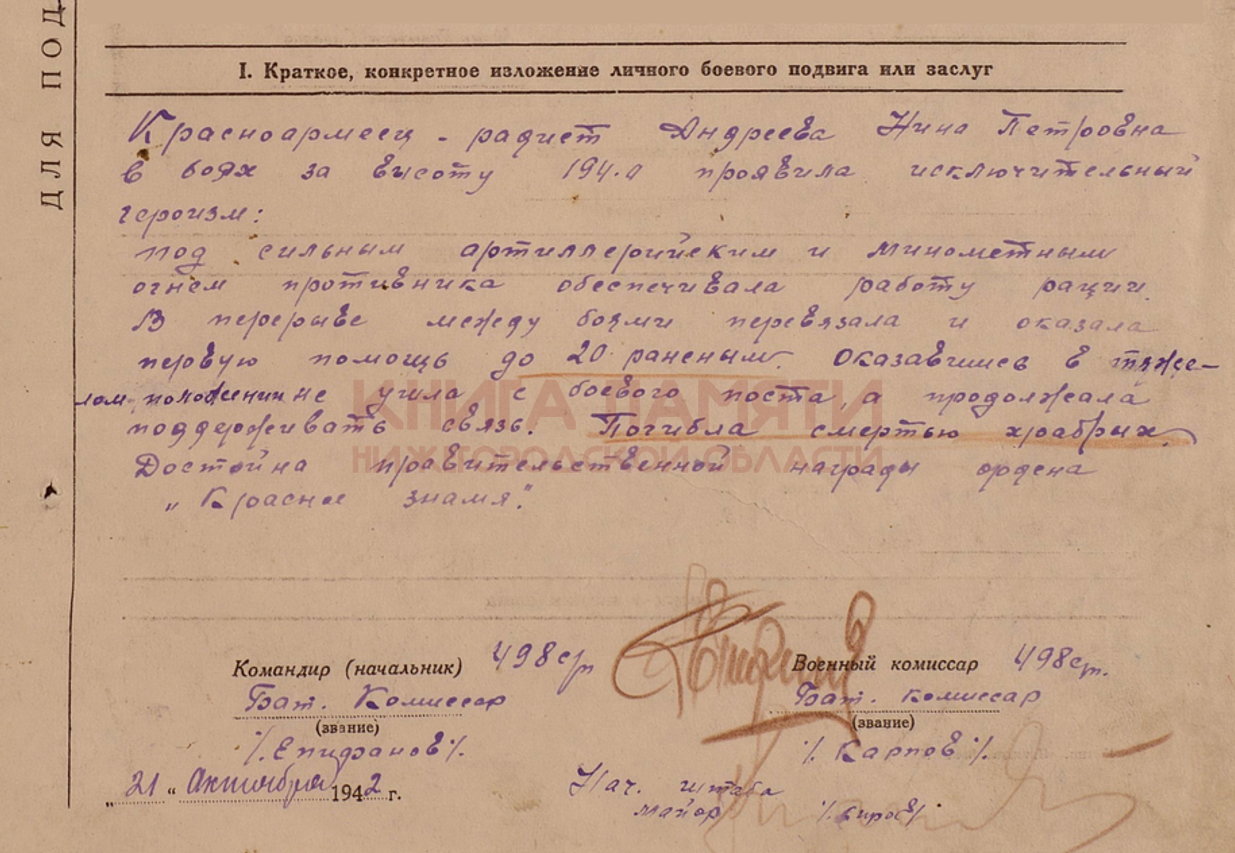 ДЛЯ ПОД
I. Краткое, конкретное изложение личного боевого подвига или заслуг
Красноармеец - радист Андреева Нина Петровна
в боях за высоту 194.0 проявила исключительный
героизм:
под сильным артиллерийским и минометным
огнем противника обеспечивала работу рации.
В перерыве между боями перевязала и оказала
первую помощь до 20 раненым. Оказавшись в тяже-
лом положении не ушла с боевого поста, а продолжала
КНИГА ПАМЯТИ
поддерживать связь. Погибла смертью храбрых.
НИЖЕГОРОДСКОЙ ОБЛАСТИ
Достойна правительственной награды ордена
„Красное знамя".
Командир (начальник) 498 сп Военный комиссар 498 сп.
Бат. Комиссар Бат. комиссар
(звание) (звание)
/Епифанов/. /Карпов/.
„21" Октября 1942 г. Нач. штаба
майор